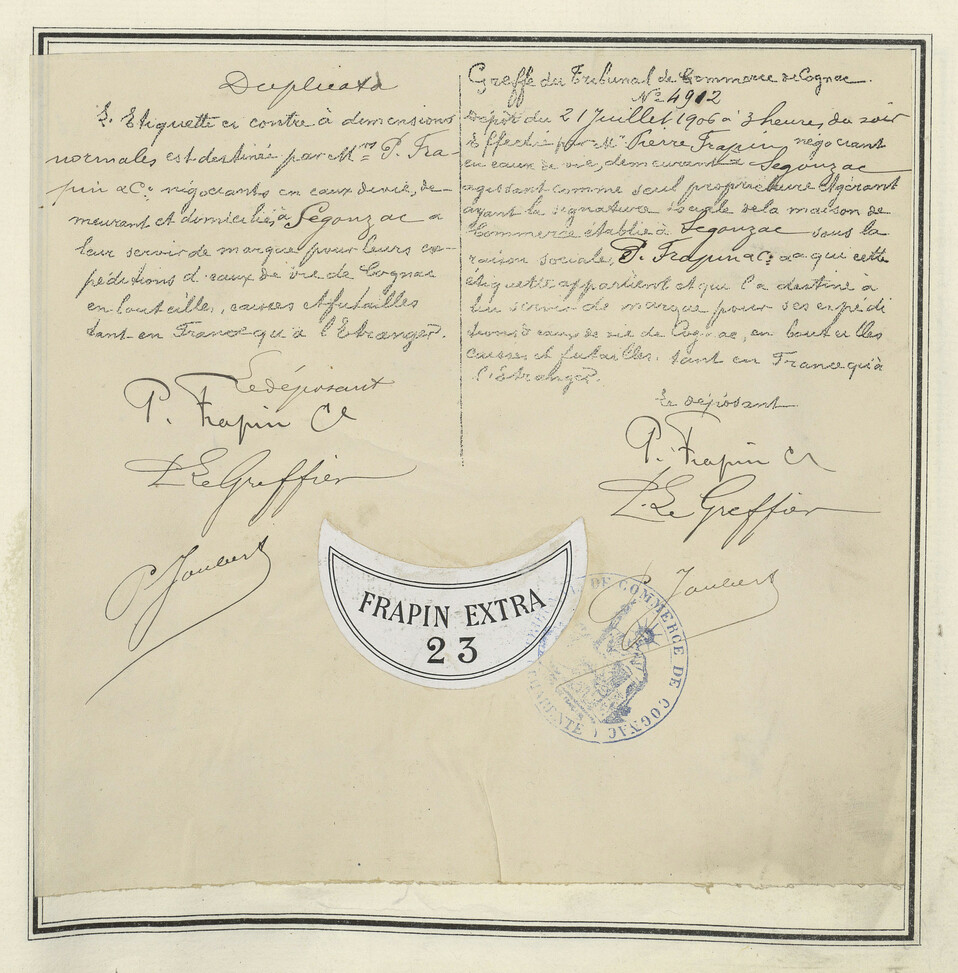 Duplicata
L'Etiquette ci contre à dimensions
normales est destiné par Mrs P. Fra-
pin & Co négociants en eaux de vie, de-
meurant et domiciliés à Segonzac a
leur servir de marque pour leurs ex-
péditions d'eaux de vie de Cognac
en bouteilles, caisses et futailles
tant en France qu'à l'Etranger.
Le déposant
P. Frapin Co
P. Le Greffier
P. Joubert
Greffe du Tribunal de Commerce de Cognac.
No 4912
Dépôt du 21 Juillet 1906 à 3 heures du soir
Effectué par Mr Pierre Frapin négociant
en eaux de vie, demeurant à Segonzac
agissant comme seul propriétaire et gérant
ayant la signature sociale de la maison de
Commerce établie à Segonzac sous la
raison sociale P. Frapin & Co à qui cette
étiquette appartient et qui l'a destiné à
lui servir de marque pour ses expédi
tions d'eaux de vie de Cognac, en bouteilles
caisses et futailles, tant en France qu'à
l'Etranger.
Le déposant
P. Frapin Co
P. Le Greffier
P. Joubert
FRAPIN EXTRA
23
DE COMMERCE DE COGNAC
CHARENTE